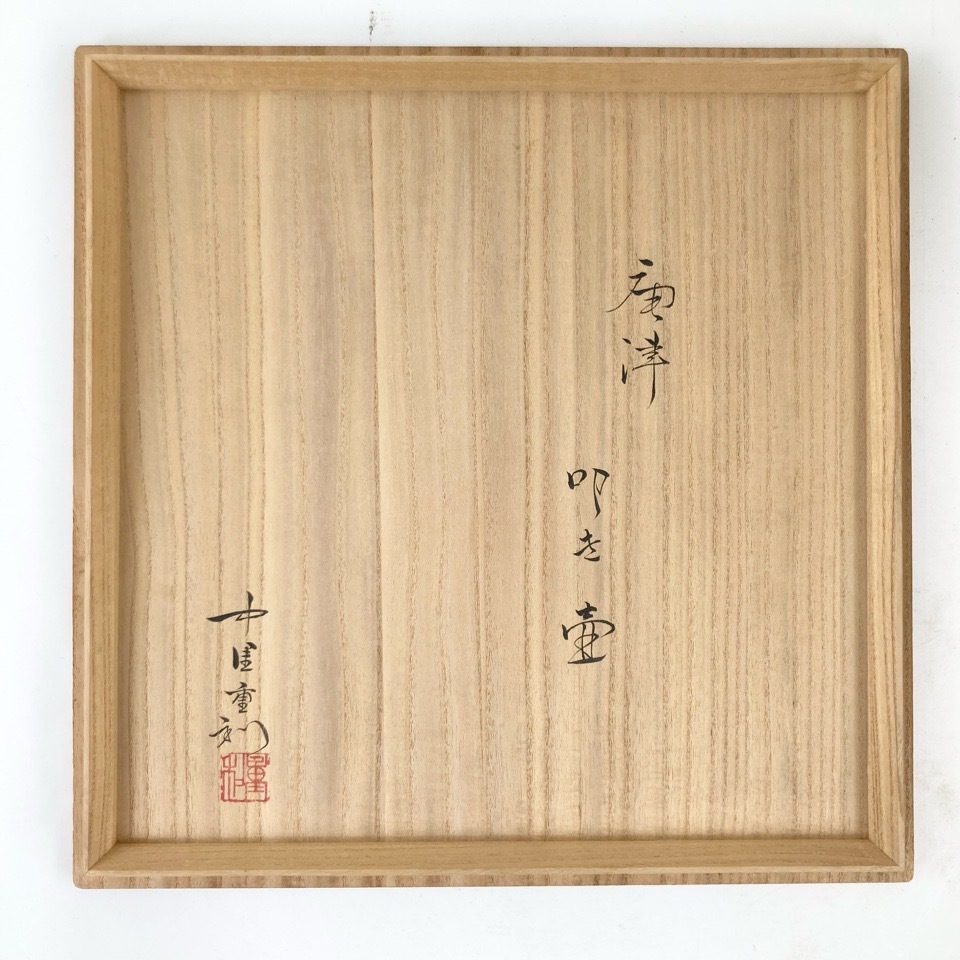 唐津
叩き壷
中里重利